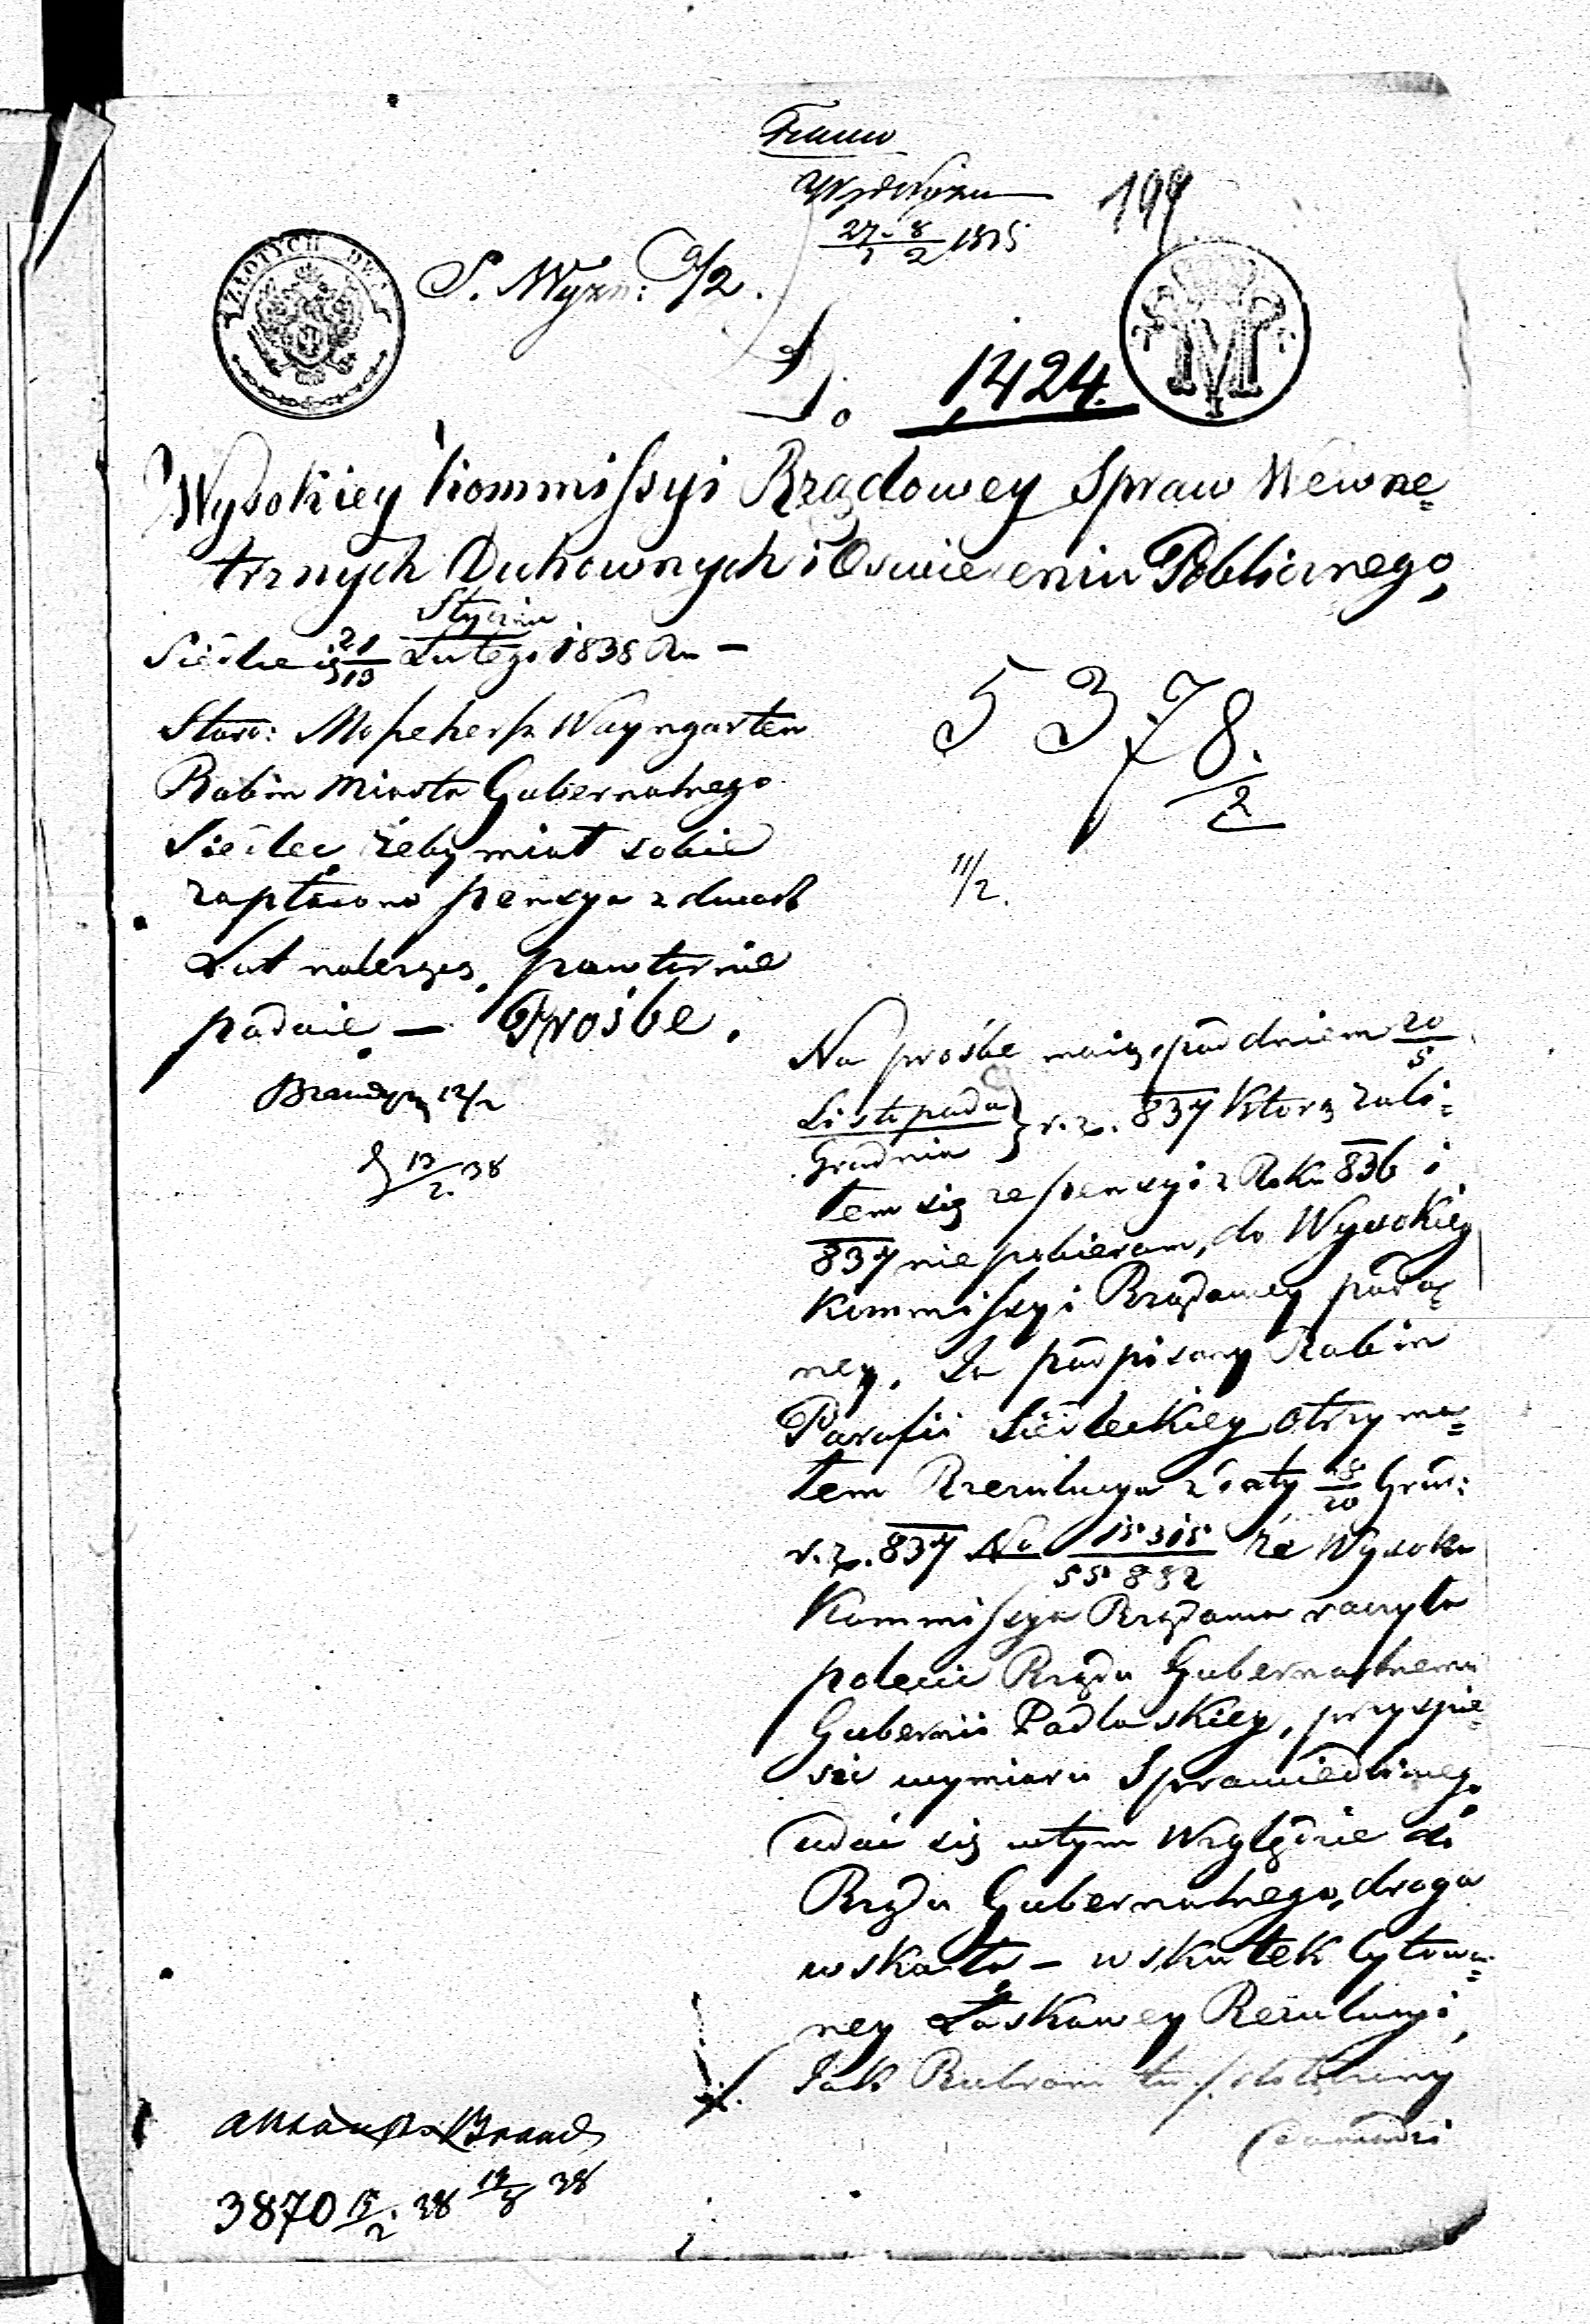 199
ZŁOTYCH DWA
S. Wyzn: 9/2.
Do 1424.
Wysokiey Kommissyi Rządowey Spraw Wewnę=
trznych Duchownych i Oswiecenia Publicznego,
Siedlce 21/13 Stycznia/Lutego 1838 Ru —
5378.
2
Staro: Moszeherszk Wayngarten
Rabin Miasta Gubernalnego
Siedlec, żeby miał sobie
zapłacono pensya z dwuch
Lat należąc, powtornie
podaie — Prośbe.
11/2.
12/2
13/2 38
Na prośbe moią, pod dniem 20/5
Listopada/Grudnia } r. z. 837 Ktorą żali=
łem się że pensyi z Roku 836 i
837 nie pobieram, do Wysokiey
Kommissyi Rządowey poda=
ney. Ja podpisany Rabin
Parafii Siedleckiey otrzyma=
łem Rezulucya z daty 8/20 Grud:
r. z. 837 No 15315/55882 że Wysoka
Kommissya Rządowa raczyła
polecić Rządu Gubernalnemu
Gubernii Podlaskiey, przyspie=
sić wymiaru Sprawiedliwego
udać się w tym Względzie do
Rządu Gubernalnego, droga
wskazała — w skutek Cytowa=
ney Łaskawey Rezulucyi,
Jak Rubrom tu dołączony
3870 13/2 38 38